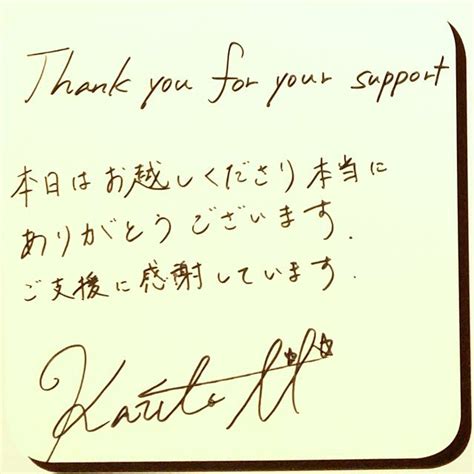 Thank you for your support
本日はお越しくださり本当に
ありがとうございます.
ご支援に感謝しています.